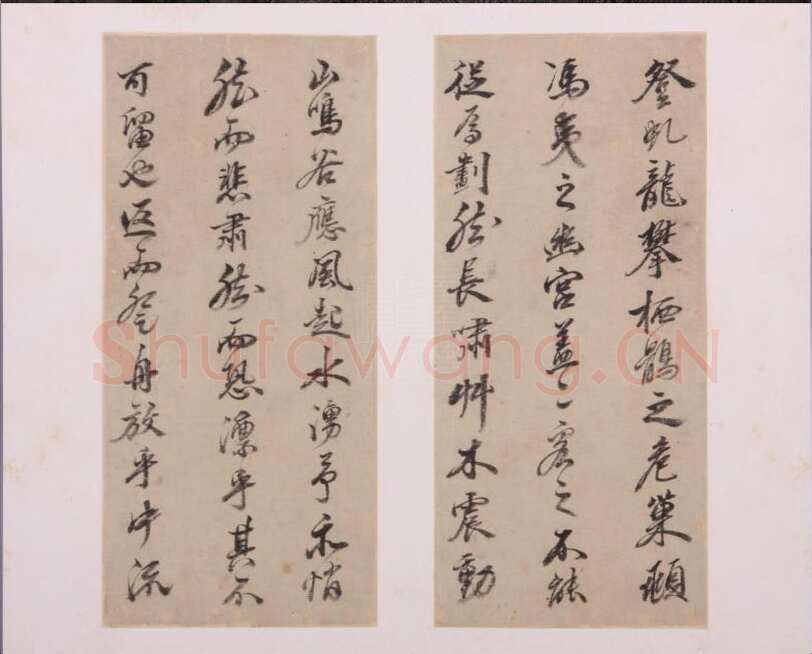 登虬龍攀栖鶻之危巢頫
馮夷之幽宮蓋二客之不能
從焉劃然長嘯艸木震動
山鳴谷應風起水湧予亦悄
然而悲肅然而恐凛乎其不
可留也返而登舟放乎中流
Shufawang.CN